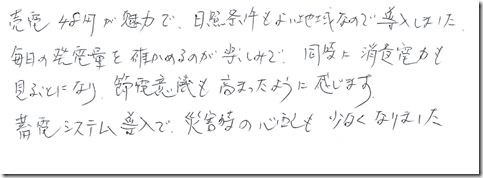 売電48円が魅力で、日照条件もよい地域なので導入しました。
毎日の発電量を確かめるのが楽しみで、同時に消費電力も
見ることになり、節電意識も高まったように感じます。
蓄電システム導入で、災害時の心配も少なくなりました